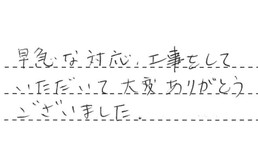 早急な対応、工事をして
いただいて大変ありがとう
ございました.